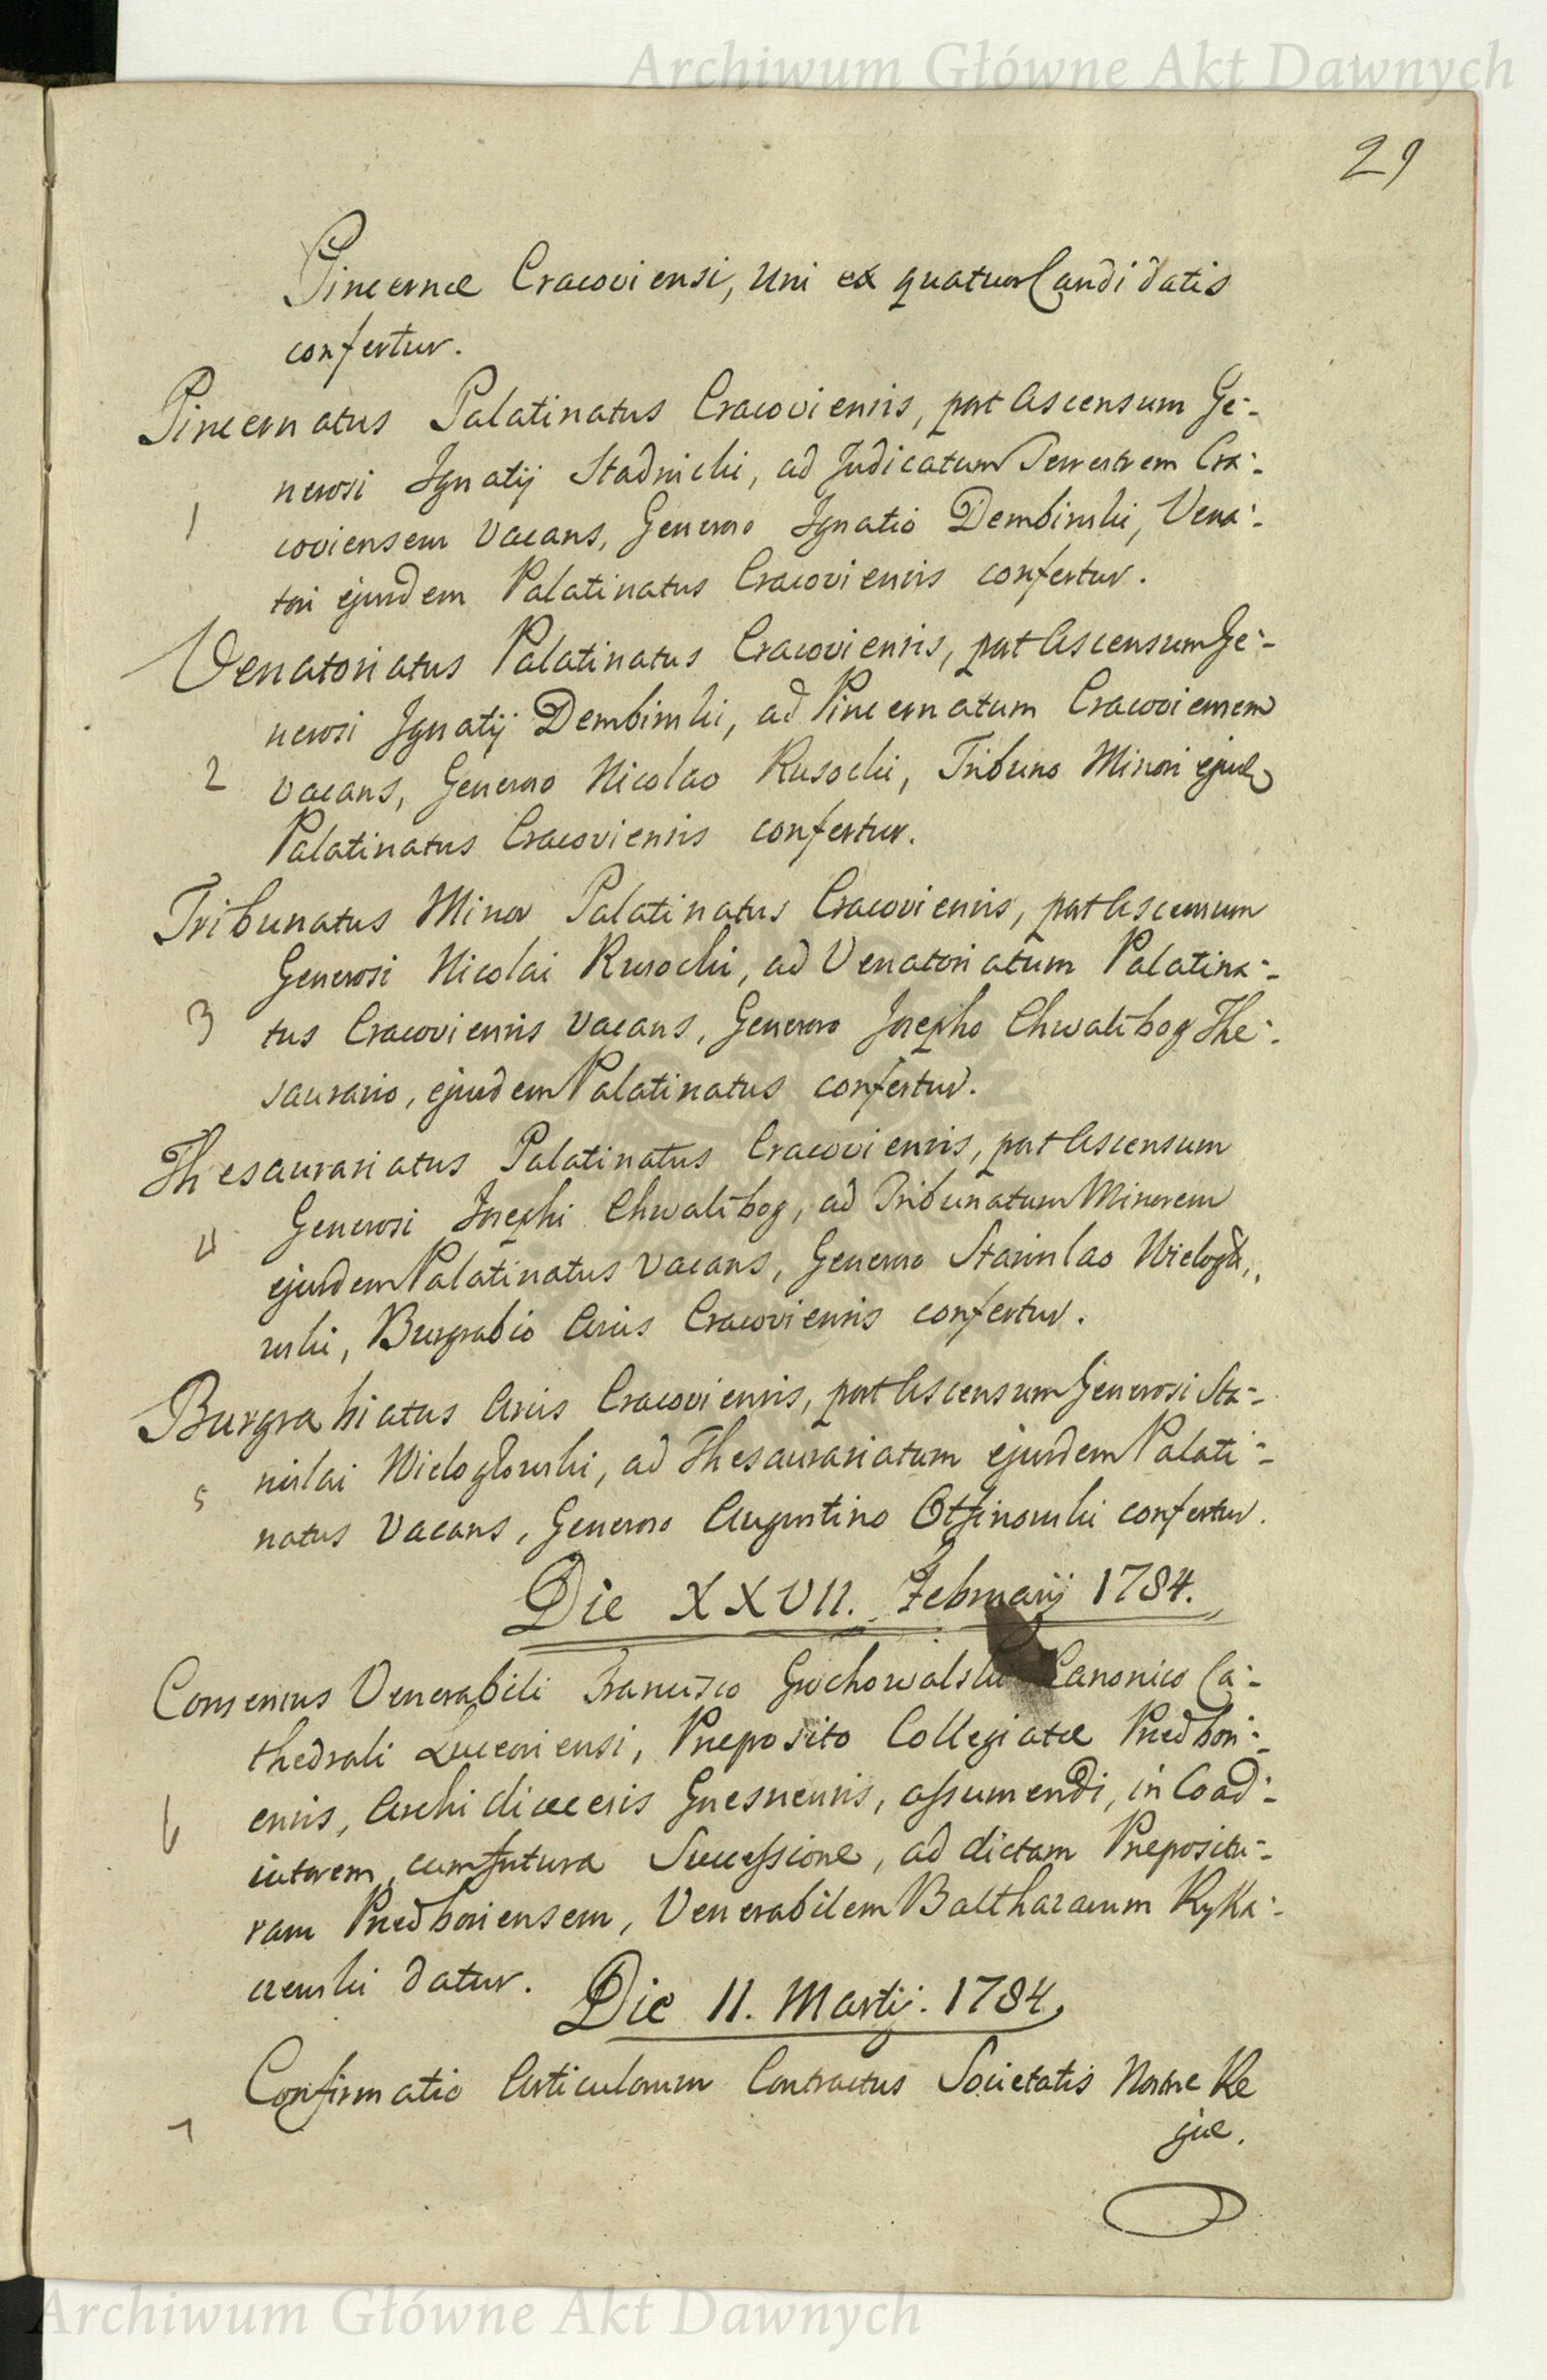 Archiwum Główne Akt Dawnych
29
Pincernæ Cracoviensi, Uni ex quatuor Candidatis
confertur.
Pincernatus Palatinatus Cracoviensis, post Ascensum Ge:-
nerosi Ignatij Stadnicki, ad Judicatum Terrestrem Cra:-
1 coviensem vacans, Generoso Ignatio Dembinski, Vena:-
tori ejusdem Palatinatus Cracoviensis confertur.
Venatoriatus Palatinatus Cracoviensis, post Ascensum Ge:-
nerosi Ignatij Dembinski, ad Pincernatum Cracoviensem
2 vacans, Generoso Nicolao Rusocki, Tribuno Minori ejusd
Palatinatus Cracoviensis confertur.
Tribunatus Minor Palatinatus Cracoviensis, post Ascensum
Generosi Nicolai Rusocki, ad Venatoriatum Palatina:-
3 tus Cracoviensis vacans, Generoso Josepho Chwalibog The:-
saurario, ejusdem Palatinatus confertur.
Thesaurariatus Palatinatus Cracoviensis, post Ascensum
4 Generosi Josephi Chwalibog, ad Tribunatum Minorem
ejusdem Palatinatus vacans, Generoso Stanislao Wieloglo,,
wski, Burgrabio Arcis Cracoviensis confertur.
Burgrabiatus Arcis Cracoviensis, post Ascensum Generosi Sta:-
5 nislai Wieloglowski, ad Thesaurariatum ejusdem Palati:-
natus vacans, Generoso Augustino Otfinowski confertur.
Die XXVII. Februarij 1784.
Consensus Venerabili Francisco Grochowalski Canonico Ca:-
thedrali Luceoriensi, Præposito Collegiatæ Præedbori:-
6 ensis, Archidiæcesis Gnesnensis, assumendi, in Coad:-
iutorem, cum futura Successione, ad dictam Præpositu:-
ram Præedboriensem, Venerabilem Balthazarum
datur. Die 11. Martij. 1784,
7 Confirmatio Articulorum Contractus Societatis Nostræ Re
giæ.
Archiwum Główne Akt Dawnych